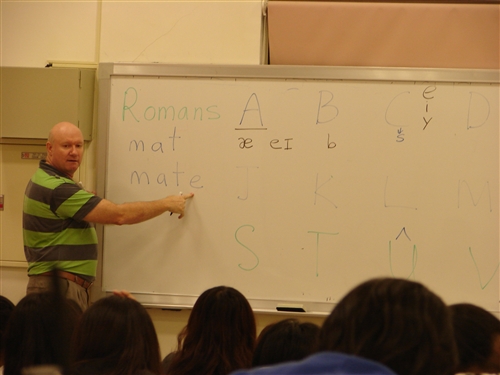 Romans A B C D
mat æ eɪ b k s e i y
mate J K L M
S T U V